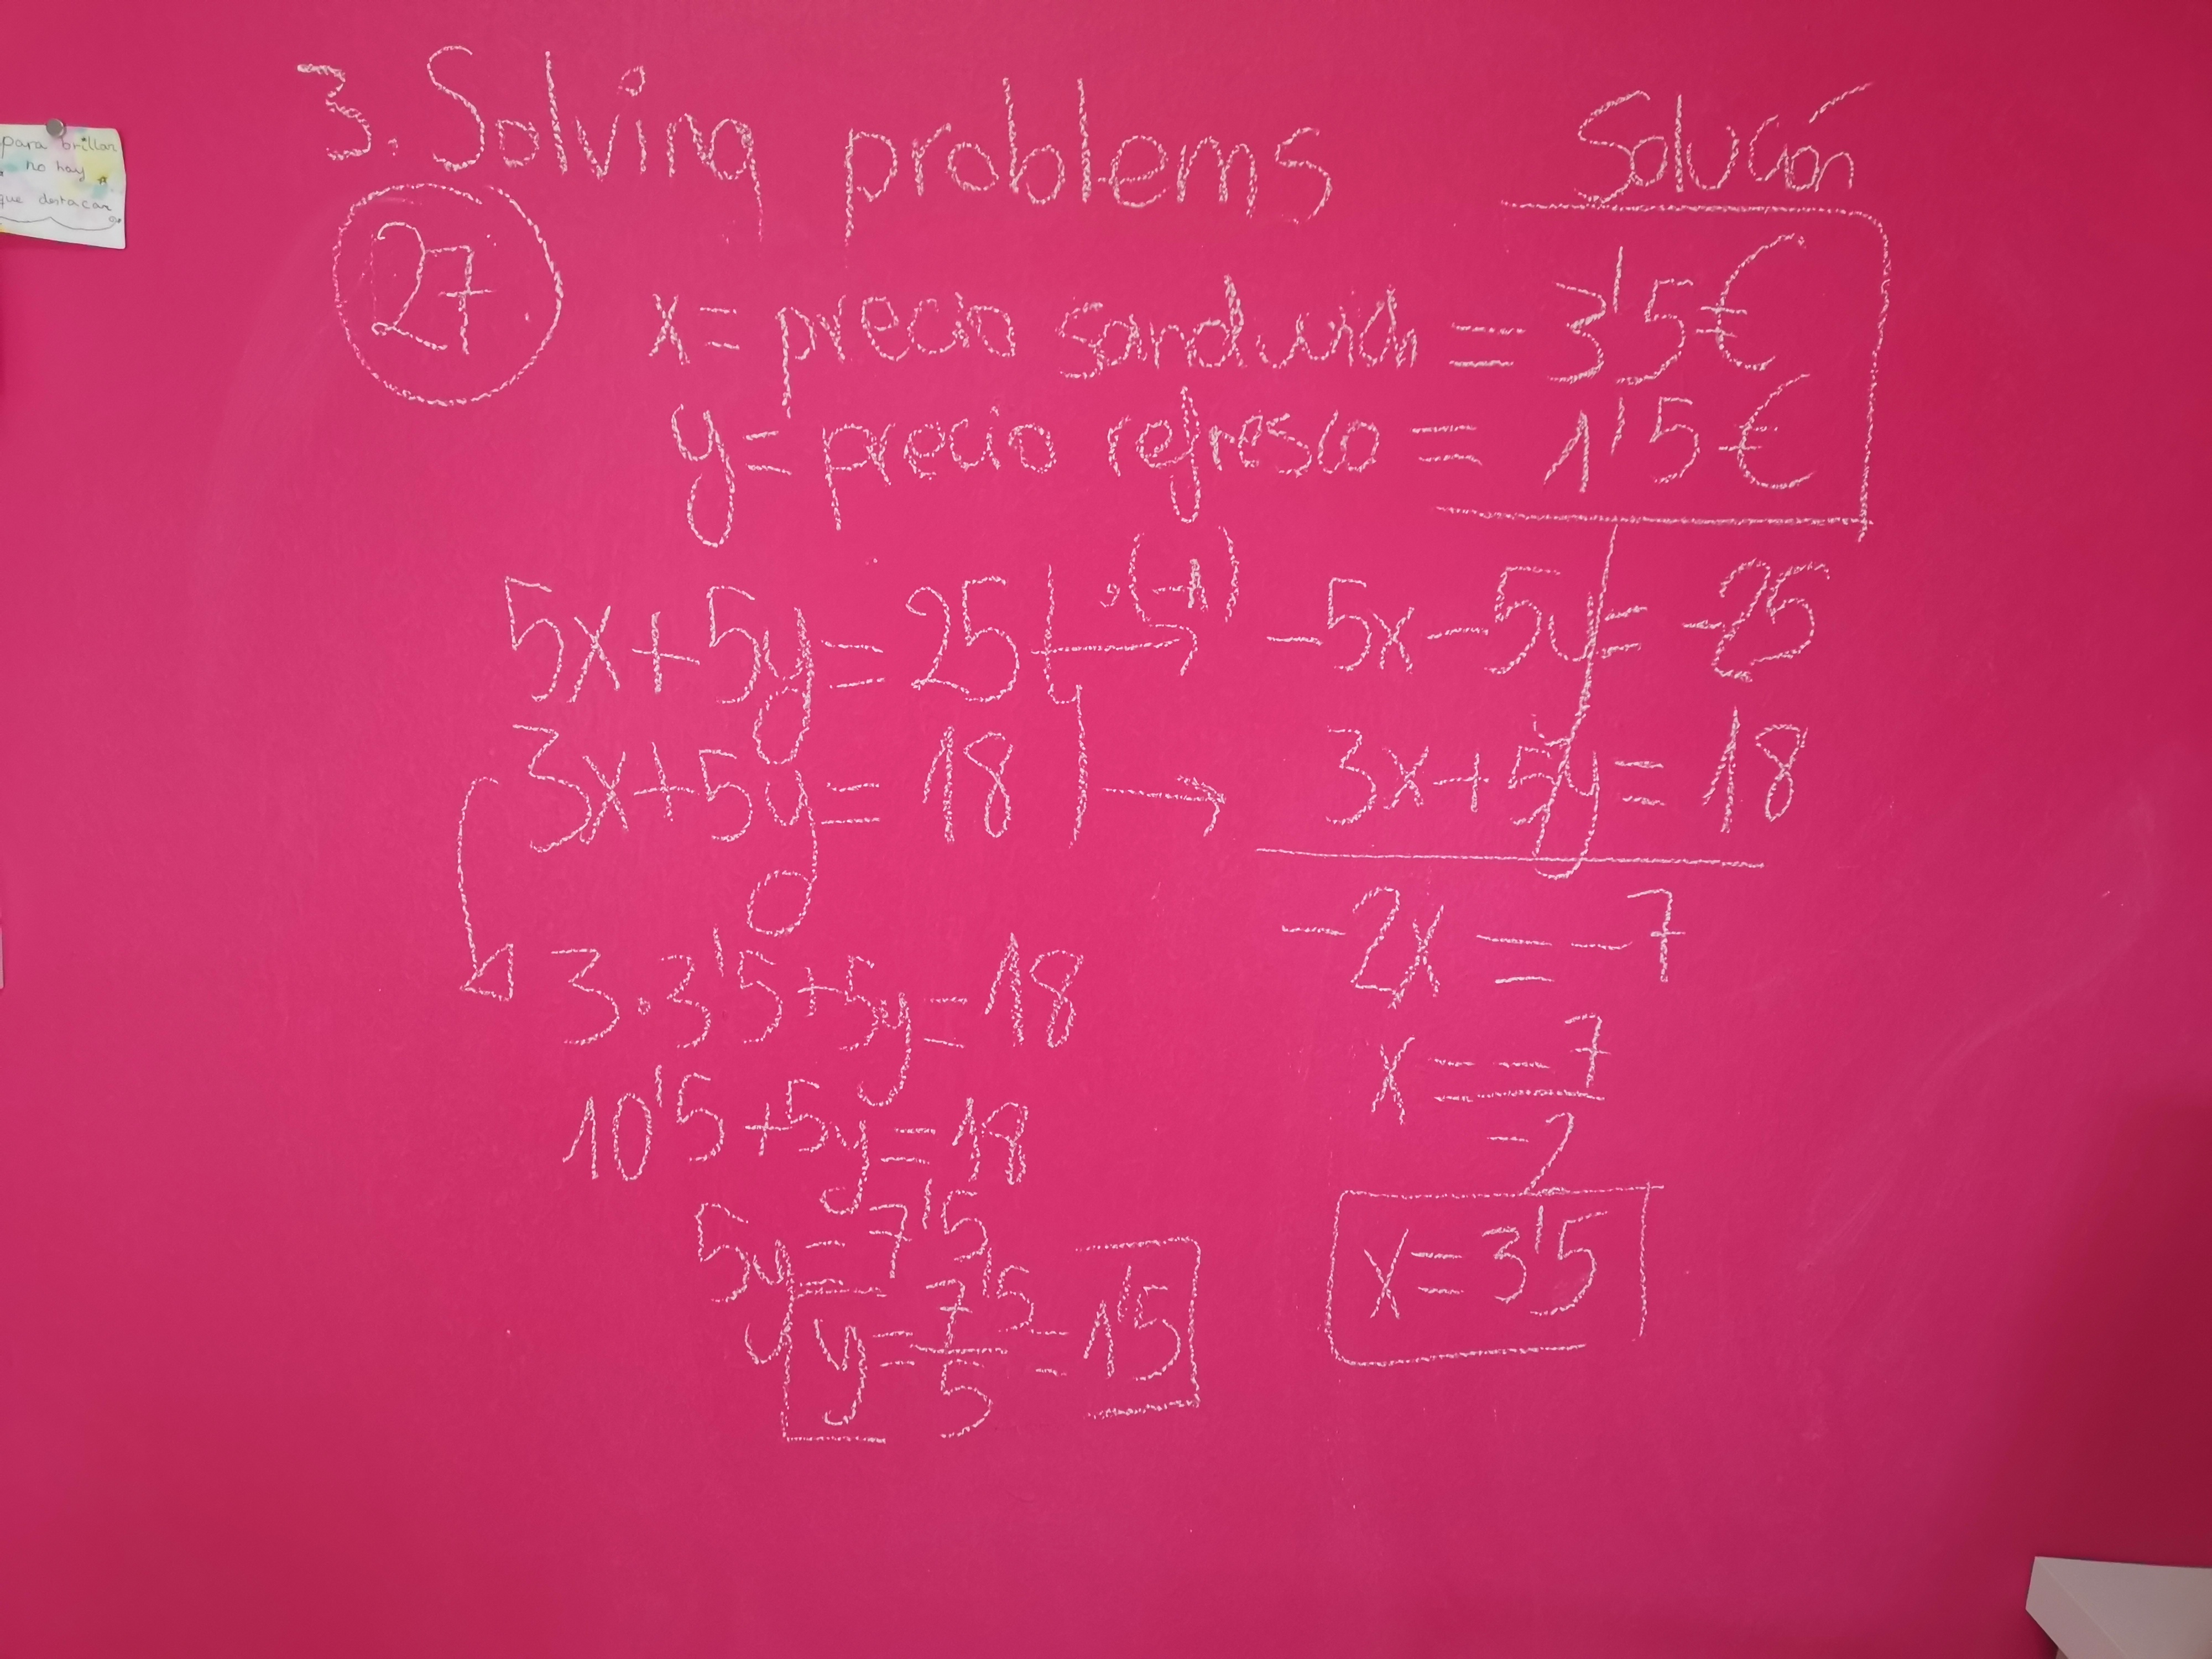 3. Solving problems
Solución
27
x = precio sandwich = 3'5€
y = precio refresco = 1'5€
5x+5y = 25 → ·(-1) -5x-5y = -25
3x+5y = 18 → 3x+5y = 18
-2x = -7
x = -7
-2
x = 3'5
3·3'5+5y = 18
10'5+5y = 18
5y = 7'5
y = 7'5/5 = 1'5
para brillar
no hay
que destacar